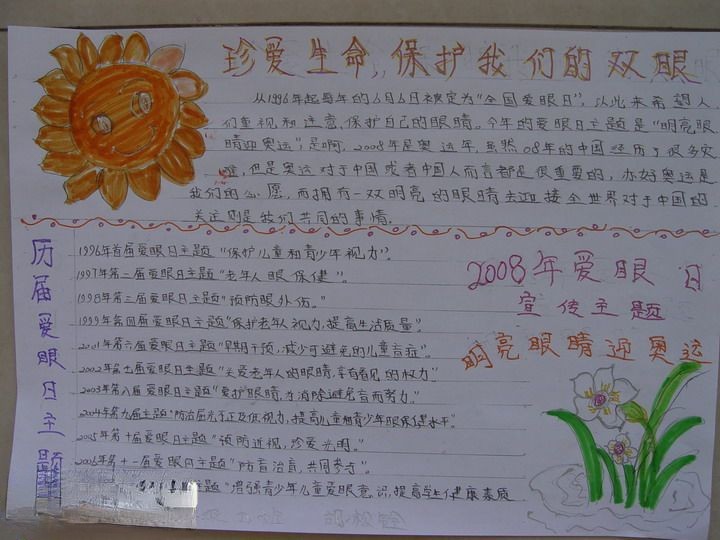 珍爱生命,保护我们的双眼
从1996年起每年的6月6日被定为“全国爱眼日”,以此来希望人
们重视和注意,保护自己的眼睛。今年的爱眼日主题是“明亮眼
睛迎奥运”;是啊,2008年是奥运年,虽然08年的中国经历了很多灾
难,但是奥运对于中国或者中国人而言都是很重要的,办好奥运是
我们的心愿,而拥有一双明亮的眼睛去迎接全世界对于中国的
关注则是我们共同的事情.
历届爱眼日主题
1996年首届爱眼日主题“保护儿童和青少年视力”.
1997年第二届爱眼日主题“老年人眼保健”.
1998年第三届爱眼日主题“预防眼外伤。”
1999年第四届爱眼日主题“保护老年人视力,提高生活质量”.
2001年第六届爱眼日主题“早期干预,减少可避免的儿童盲症”.
2002年第七届爱眼日主题“关爱老年人的眼睛,享有看见的权力”
2003年第八届爱眼日主题“爱护眼睛,为消除避免盲而努力。”
2004年第九届主题“防治屈光不正及低视力,提高儿童和青少年眼保健水平”
2005年第十届爱眼日主题“预防近视,珍爱光明。”
2006年第十一届爱眼日主题“防盲治盲,共同参与”.
主题“增强青少年儿童爱眼意识,提高学生健康素质
2008年爱眼日
宣传主题
明亮眼睛迎奥运